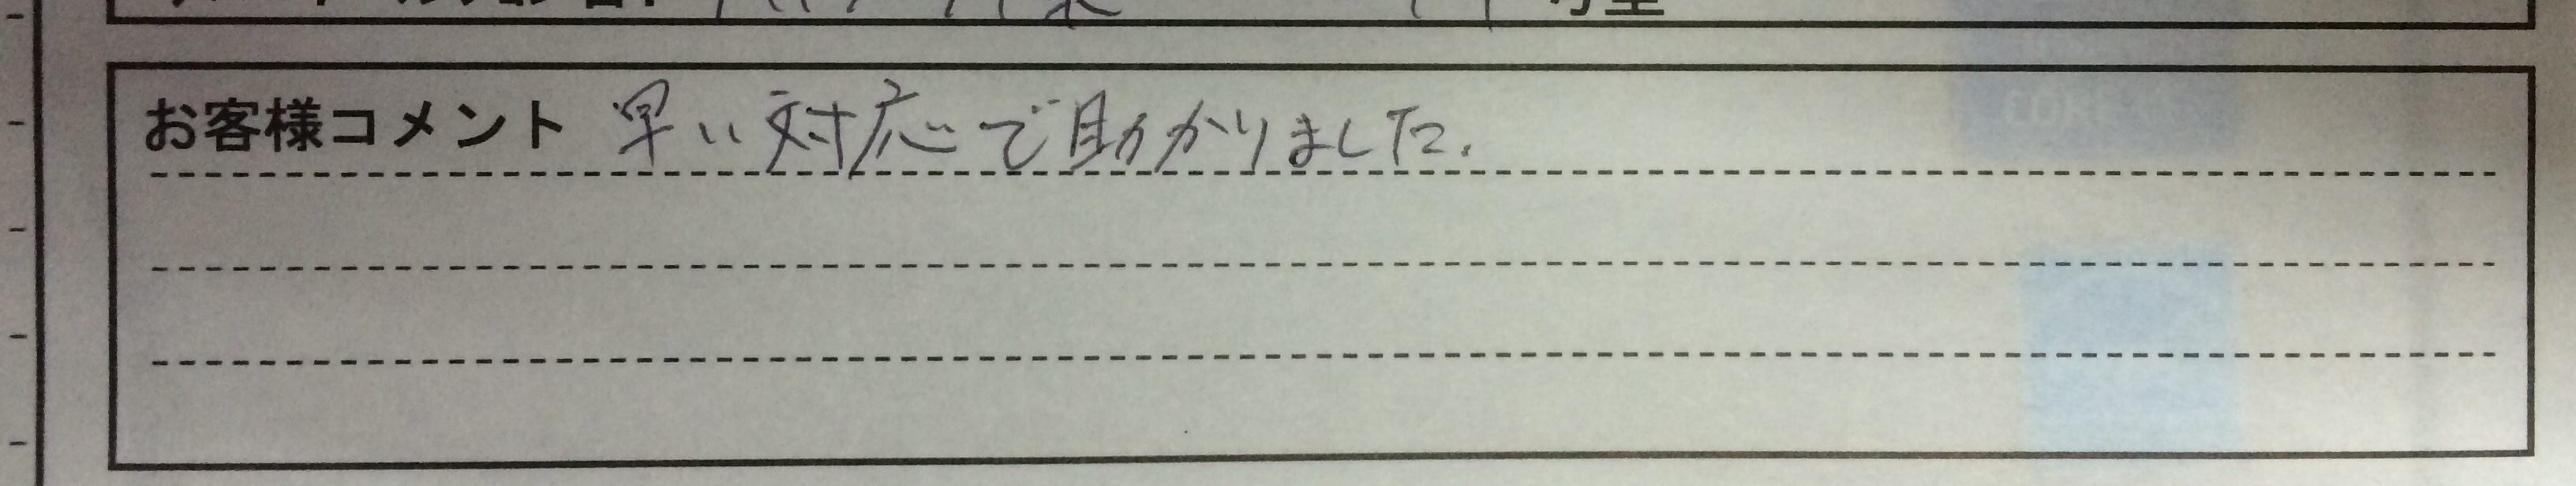 お客様コメント 早い対応で助かりました.